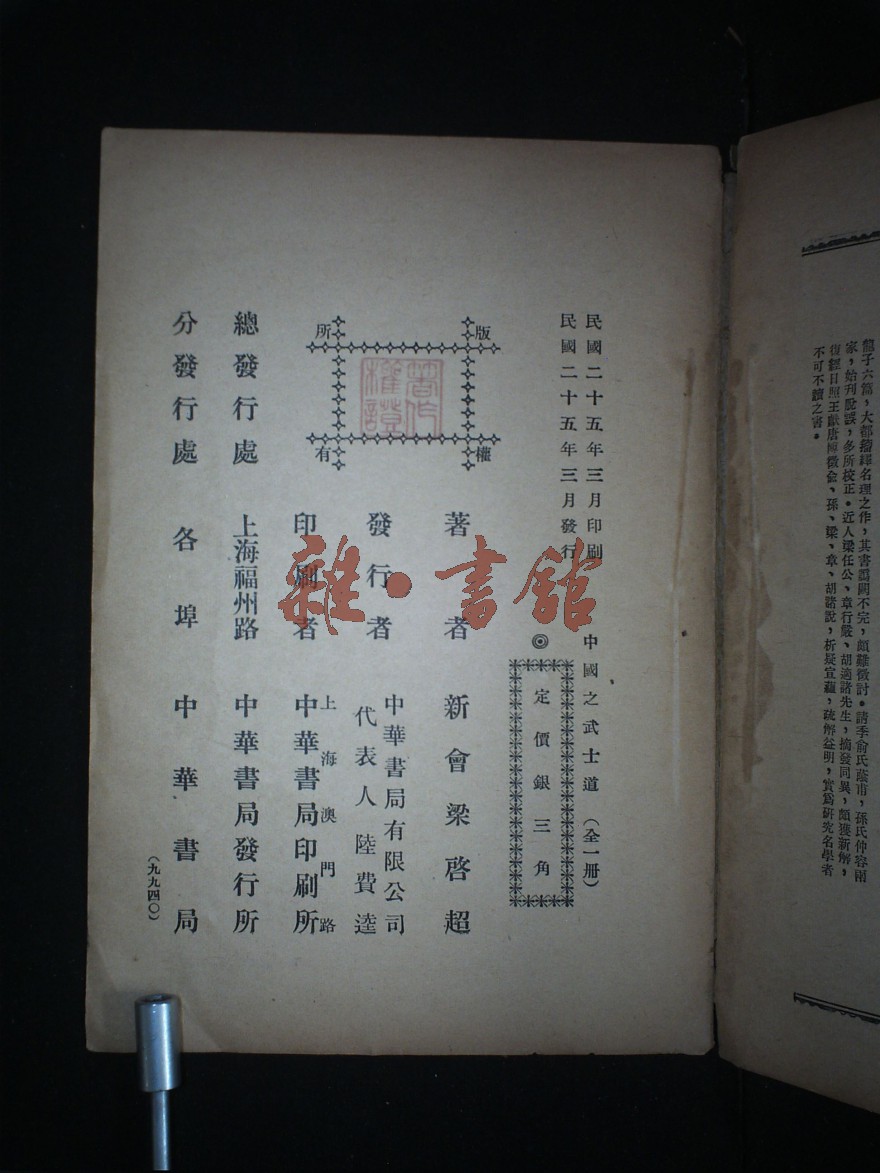 龍子六篇，大都擿繹名理之作，其書譌闕不完，頗難徵討。清季俞氏蔭甫，孫氏仲容兩
家，始刊脫誤，多所校正。近人梁任公、章行嚴、胡適諸先生，摘發同異，頗獲新解，
復經日照王獻唐博徵俞、孫、梁、章、胡諸說，析疑宣蘊，疏解益明，實爲研究名學者
不可不讀之書。
民國二十五年三月印刷
民國二十五年三月發行
中國之武士道（全一册）
◎
定價銀三角
版權所有
著作權證
著者 新會梁啓超
發行者 中華書局有限公司
代表人 陸費逵
印刷者 上海澳門路
中華書局印刷所
總發行處 上海福州路 中華書局發行所
分發行處 各埠 中華書局
（九九四〇）
雜·書館